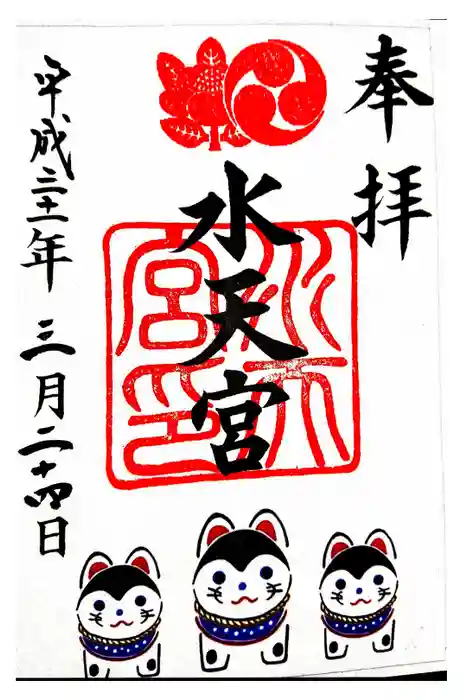 奉拝
水天宮
水天宮印
平成三十一年三月二十四日